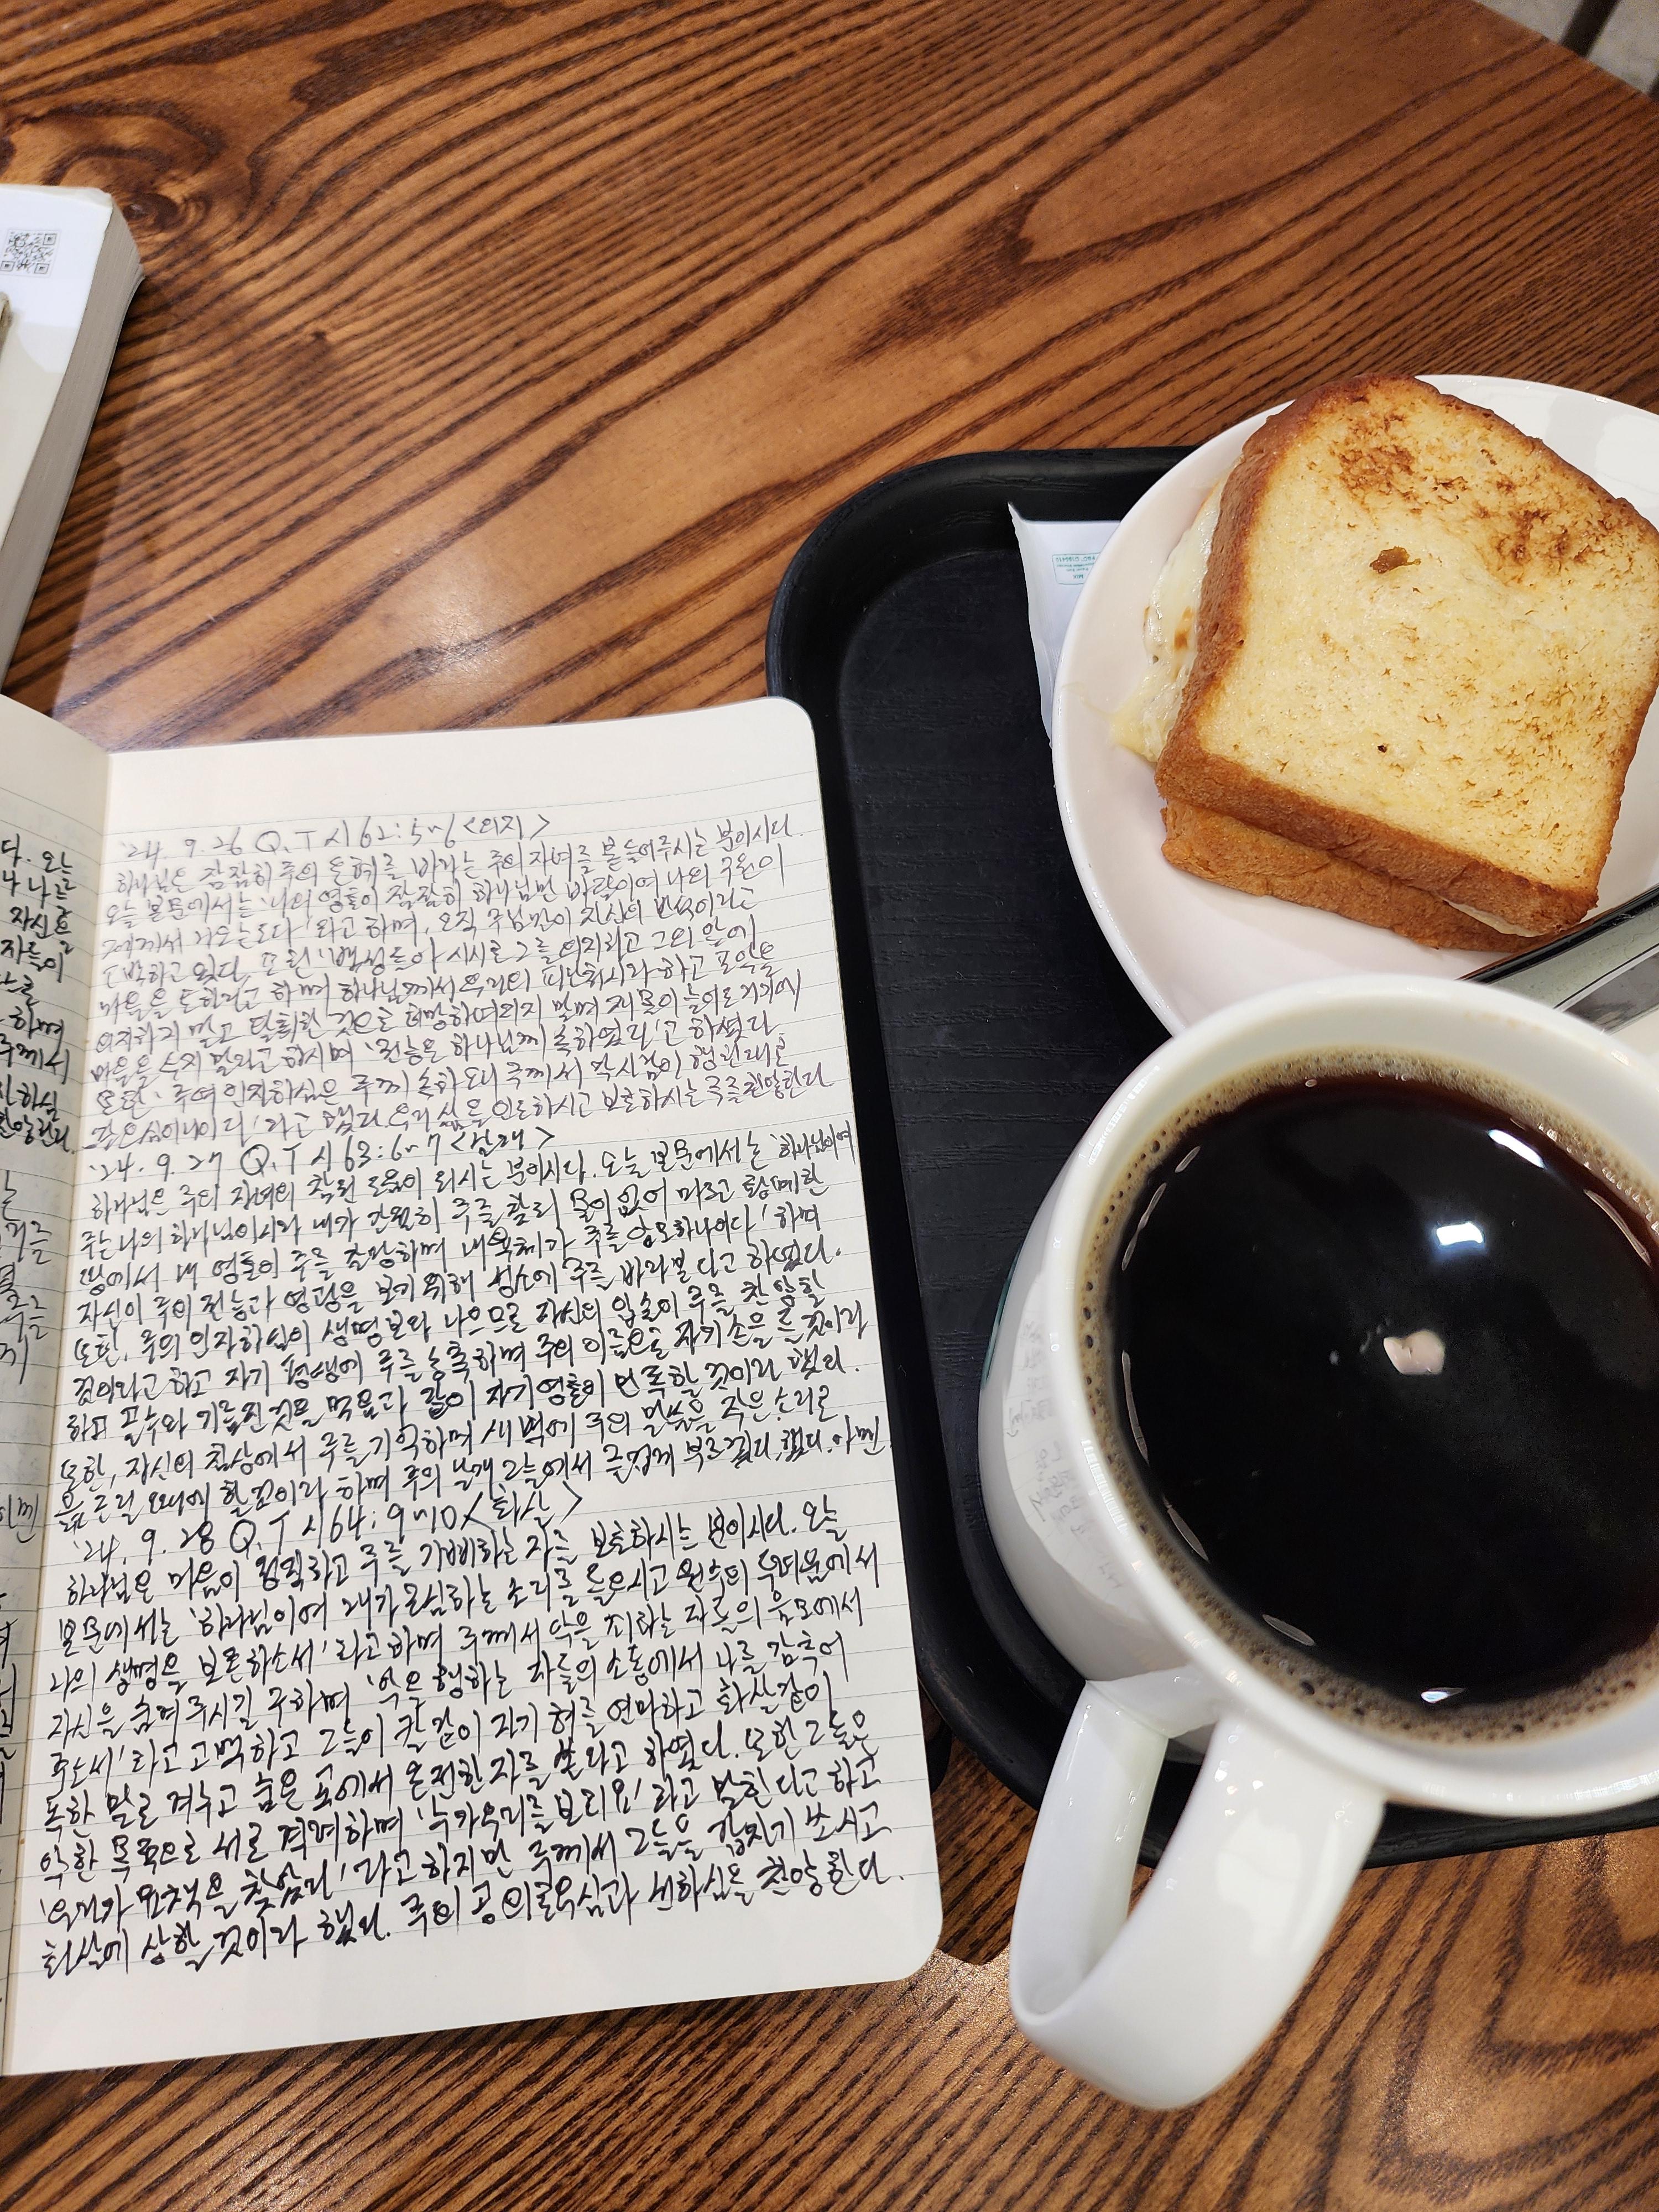 '24. 9. 26 Q.T 시 62:5~6 <의지>
하나님은 잠잠히 주의 은혜를 바라는 주의 자녀를 붙들어주시는 분이시다.
오늘 본문에서는 '나의 영혼이 잠잠히 하나님만 바람이여 나의 구원이
그에게서 나오는도다'라고 하며, 오직 주님만이 자신의 반석이라고
고백하고 있다. 또한 '백성들아 시시로 그를 의지하고 그의 앞에
마음을 토하라'고 하며 하나님께서 우리의 피난처시라 하고 포악을
의지하지 말고 탈취한 것으로 허망하여지지 말며 재물이 늘어도 거기에
마음을 두지 말라고 하시며 '권능은 하나님께 속하였다'고 하셨다.
또한 '주여 인자하심은 주께 속하오니 주께서 각 사람이 행한대로
갚으심이니이다'라고 했다. 우리 삶을 인도하시고 보호하시는 주를 찬양한다
'24. 9. 27 Q.T 시 63:6~7 <날개>
하나님은 주의 자녀의 참된 도움이 되시는 분이시다. 오늘 본문에서는 '하나님이여
주는 나의 하나님이시라 내가 간절히 주를 찾되 물이 없어 마르고 황폐한
땅에서 내 영혼이 주를 갈망하며 내 육체가 주를 앙모하나이다' 하며
자신이 주의 권능과 영광을 보기 위해 성소에 주를 바라본다고 하였다.
또한, 주의 인자하심이 생명보다 나으므로 자신의 입술이 주를 찬양할
것이라고 하고 자기 평생에 주를 송축하며 주의 이름으로 자기 손을 든 것이라
하고 골수와 기름진 것을 먹음과 같이 자기 영혼이 만족할 것이라 했다.
또한, 자신의 침상에서 주를 기억하며 새벽에 주의 말씀을 작은 소리로
읊조릴 때에 할 것이라 하며 주의 날개 그늘에서 즐겁게 부르겠다 했다. 아멘
'24. 9. 28 Q.T 시 64:9~10 <화살>
하나님은 마음이 정직하고 주를 기뻐하는 자를 보호하시는 분이시다. 오늘
본문에서는 '하나님이여 내가 근심하는 소리를 들으시고 원수의 두려움에서
나의 생명을 보존하소서'라고 하며 주께서 악을 꾀하는 자들의 음모에서
자신을 숨겨 주시길 구하며 '악을 행하는 자들의 소동에서 나를 감추어
주소서'라고 고백하고 그들이 칼 같이 자기 혀를 연마하고 화살같이
독한 말로 겨누고 숨은 곳에서 온전한 자를 쏜다고 하였다. 또한 그들은
악한 목적으로 서로 격려하며 '누가 우리를 보리요'하고 말한다고 하고
'우리가 묘책을 찾았다'라고 하지만 주께서 그들을 갑자기 쏘시고
화살에 상할 것이라 했다. 주의 공의로우심과 선하심을 찬양한다.